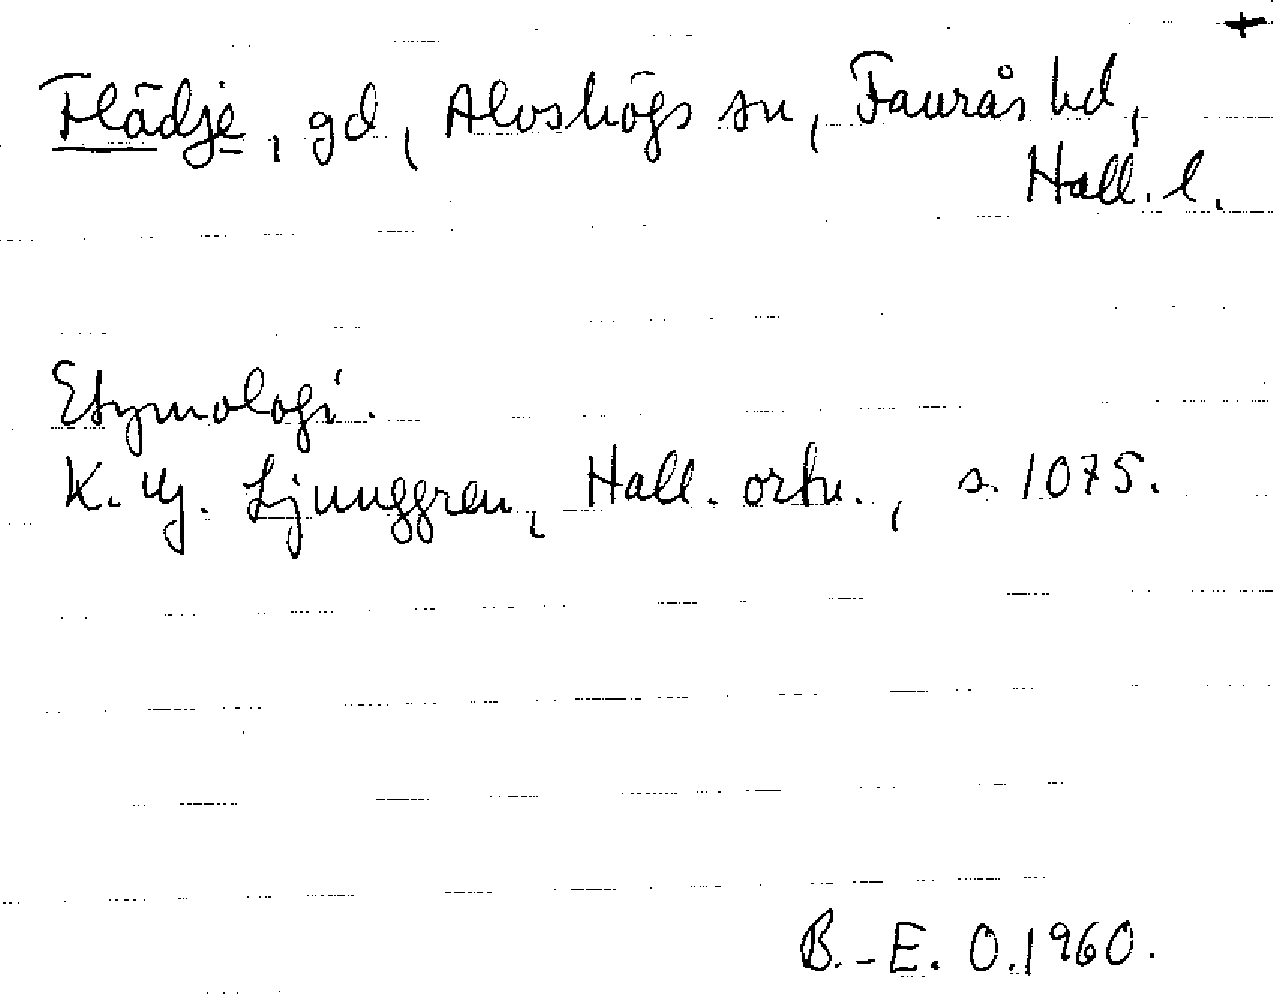 +
Flädje, gd, Alvshögs sn, Faurås hd,
Hall. l.
Etymologi.
K. Hj. Ljunggren, Hall. ortn., s. 1075.
B.-E. O. 1960.